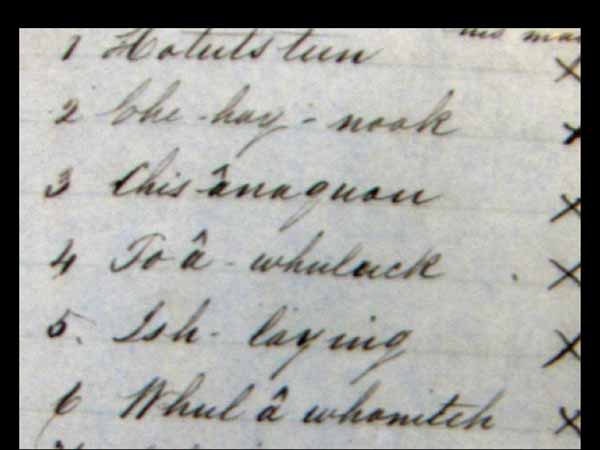 his mar
1 Hotutstun ×
2 Che-hay-nook ×
3 Chis-ânaquan ×
4 To â-whulack ×
5. Ish-laying ×
6 Whul â whanitch ×